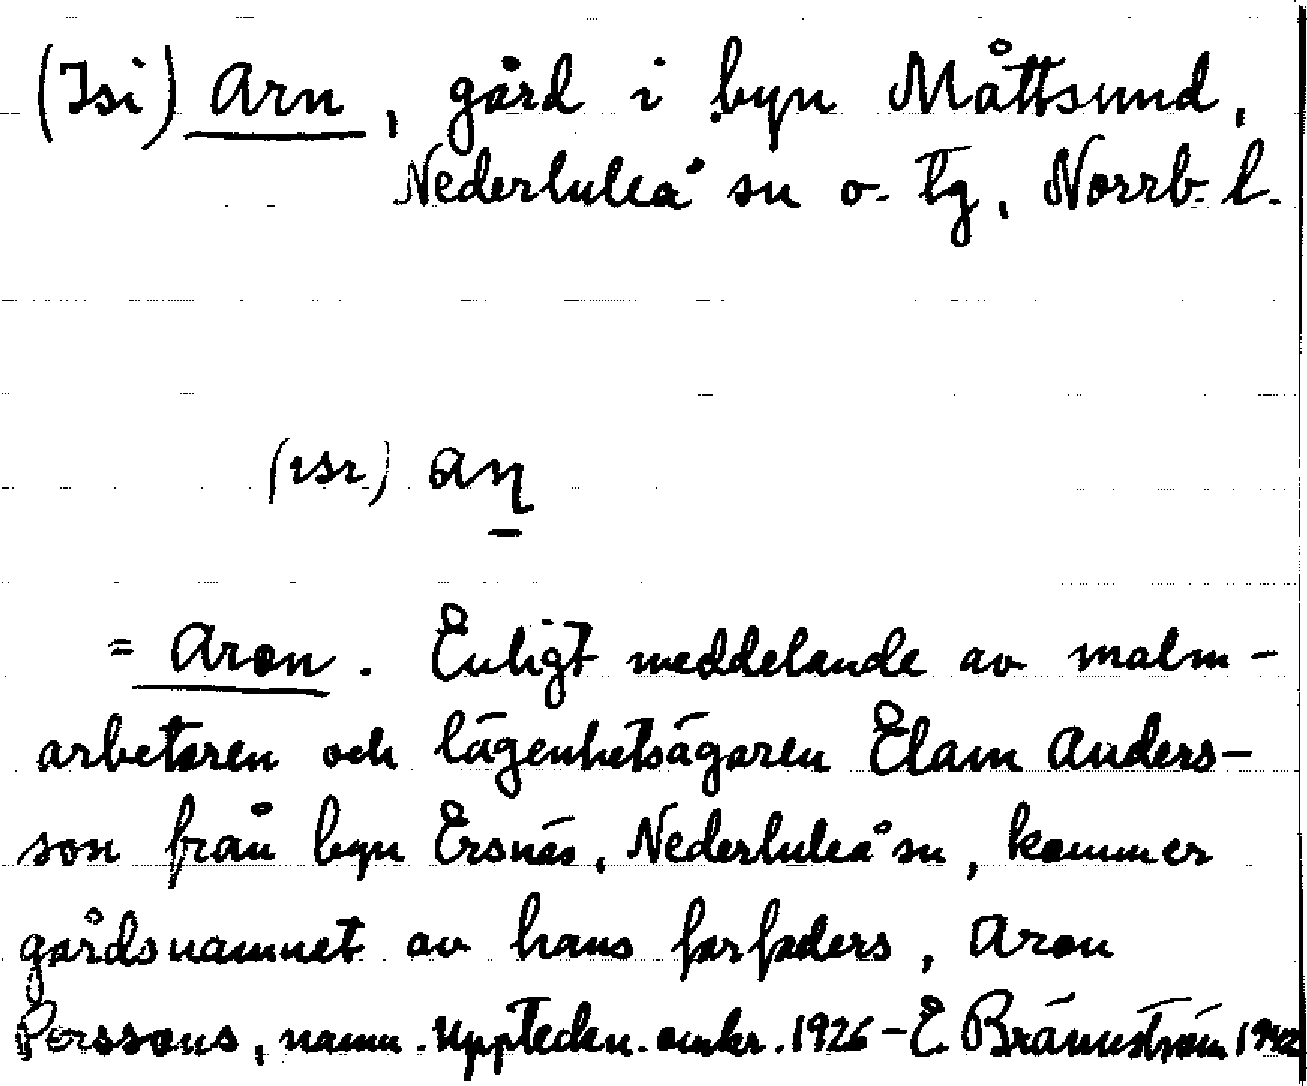 (Isi) Arn, gård i byn Måttsund,
Nederluleå sn o. tg, Norrb. l.
(ɪsɪ) aɳ
= Aron. Enligt meddelande av malm-
arbetaren och lägenhetsägaren Elam Anders-
son från byn Ersnäs, Nederluleå sn, kommer
gårdsnamnet av hans farfaders, Aron
Perssons, namn. Uppteckn. omkr. 1926 – E. Brännström 1942